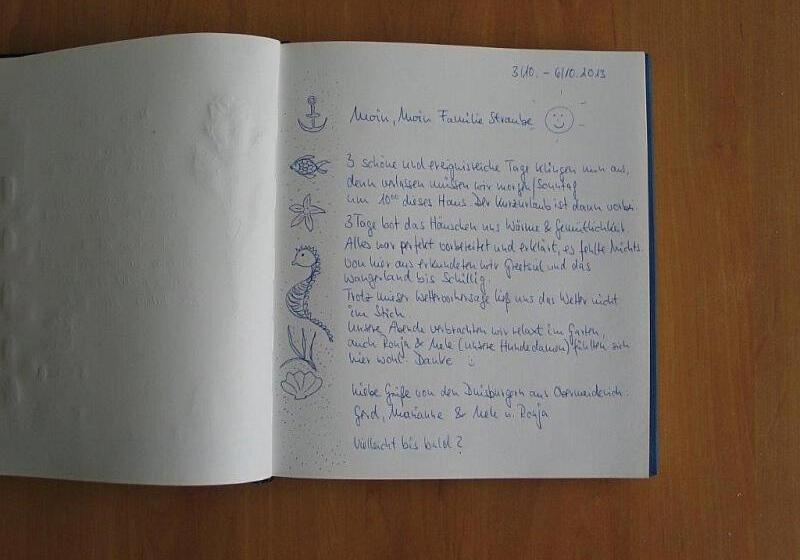 3/10. - 6/10.2013
Moin, Moin Familie Straube
3 schöne und ereignisreiche Tage klingen nun aus,
denn verlassen müssen wir morgen/Sonntag
um 10⁰⁰ dieses Haus. Der Kurzurlaub ist dann vorbei.
3 Tage bot das Häuschen uns Wärme & Gemütlichkeit.
Alles war perfekt vorbereitet und erklärt, es fehlte Nichts.
Von hier aus erkundeten wir Greetsiel und das
Wangerland bis Schillig.
Trotz mieser Wettervorhersage ließ uns das Wetter nicht
im Stich.
Unsere Abende verbrachten wir relaxt im Garten,
auch Ronja & Nele (unsere Hundedamen) fühlten sich
hier wohl. Danke :)
Liebe Grüße von den Duisburgern aus Obermeiderich.
Gerd, Marianne & Nele u. Ronja
Vielleicht bis bald?